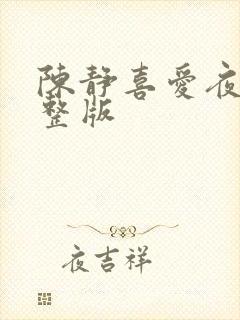 陳靜喜愛夜
整版
夜吉祥